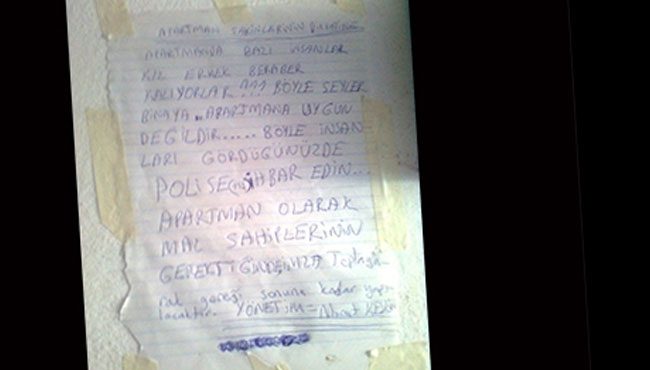 APARTMAN SAKİNLERİNİN DİKKATİNE
APARTMANDA BAZI İNSANLAR
KIZ ERKEK BERABER
KALIYORLAR ??? BÖYLE ŞEYLER
BİNAYA .. APARTMANA UYGUN
DEĞİLDİR..... BÖYLE İNSAN-
LARI GÖRDÜĞÜNÜZDE
POLİSE HABAR EDİN...
APARTMAN OLARAK
MAL SAHİPLERİNİN
GEREKTİĞİNDE İMZA Toplaya-
rak gereği sonuna kadar yapı-
lacaktır. YÖNETİM =